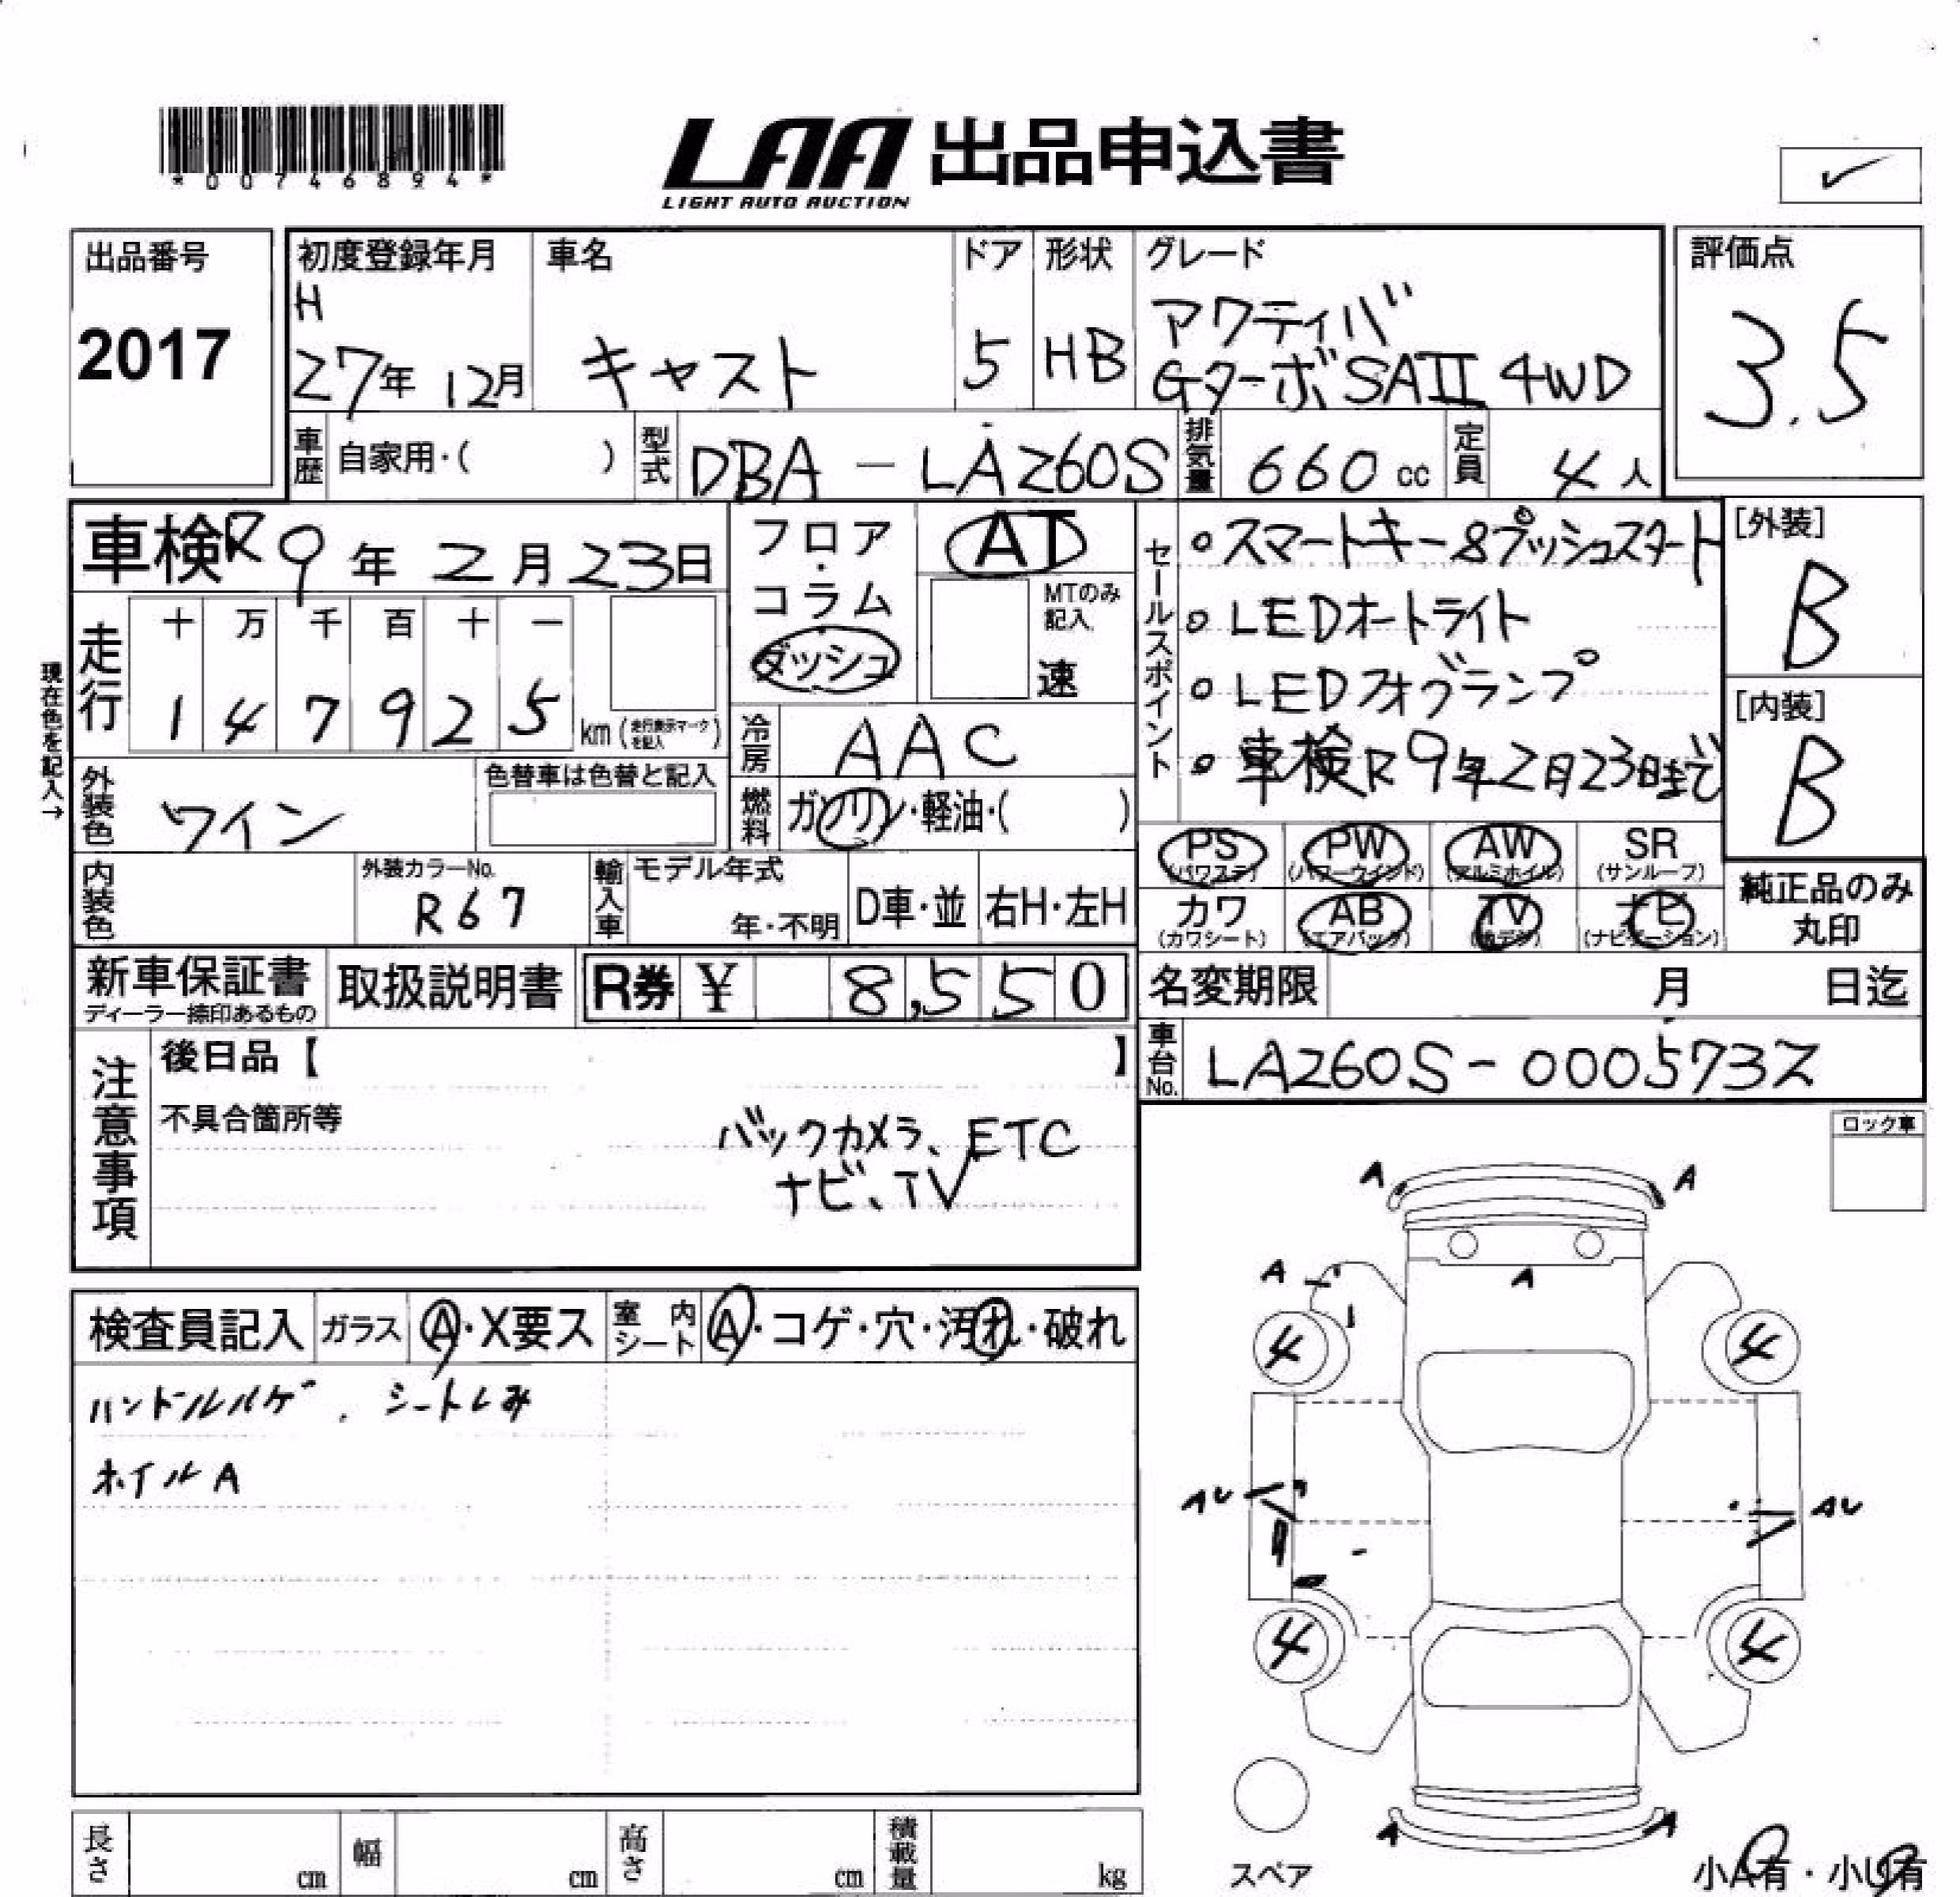 *00746894*
LAA 出品申込書
LIGHT AUTO AUCTION
出品番号
2017
初度登録年月
H
27年 12月
車名
キャスト
ドア
5
形状
HB
グレード
アクティバ
Gターボ SAII 4WD
評価点
3.5
車歴
自家用・( )
型式
DBA - LA260S
排気量
660 cc
定員
4 人
車検 R9年 2月 23日
フロア・コラム
ダッシュ
AT
MTのみ
記入
速
セールスポイント
○ スマートキー&プッシュスタート
○ LEDオートライト
○ LEDフォグランプ
○ 車検R9年2月23日まで
[外装]
B
[内装]
B
現在色を記入→
走行
十 万 千 百 十 一
1 4 7 9 2 5
km(走行表示マークを記入)
冷房
AAC
外装色
ワイン
色替車は色替と記入
燃料
ガソリン・軽油・( )
PS
(パワステ)
PW
(パワーウインド)
AW
(アルミホイル)
SR
(サンルーフ)
カワ
(カワシート)
AB
(エアバック)
TV
ナビ
(ナビゲーション)
純正品のみ
丸印
内装色
外装カラーNo.
R67
輸入車
モデル年式
年・不明
D車・並
右H・左H
新車保証書
ディーラー捺印あるもの
取扱説明書
R券 ¥ 8,550
名変期限
月 日迄
車台No.
LA260S-0005732
注意事項
後日品【 】
不具合箇所等
バックカメラ、ETC
ナビ、TV
ロック車
検査員記入
ガラス
A・X要ス
室内シート
A・コゲ・穴・汚れ・破れ
ハンドルハゲ. シートしみ
ホイルA
A A
A
A
4 4
AU AU
4 4
A A
スペア
小A有・小U有
長さ
cm
幅
cm
高さ
cm
積載量
kg